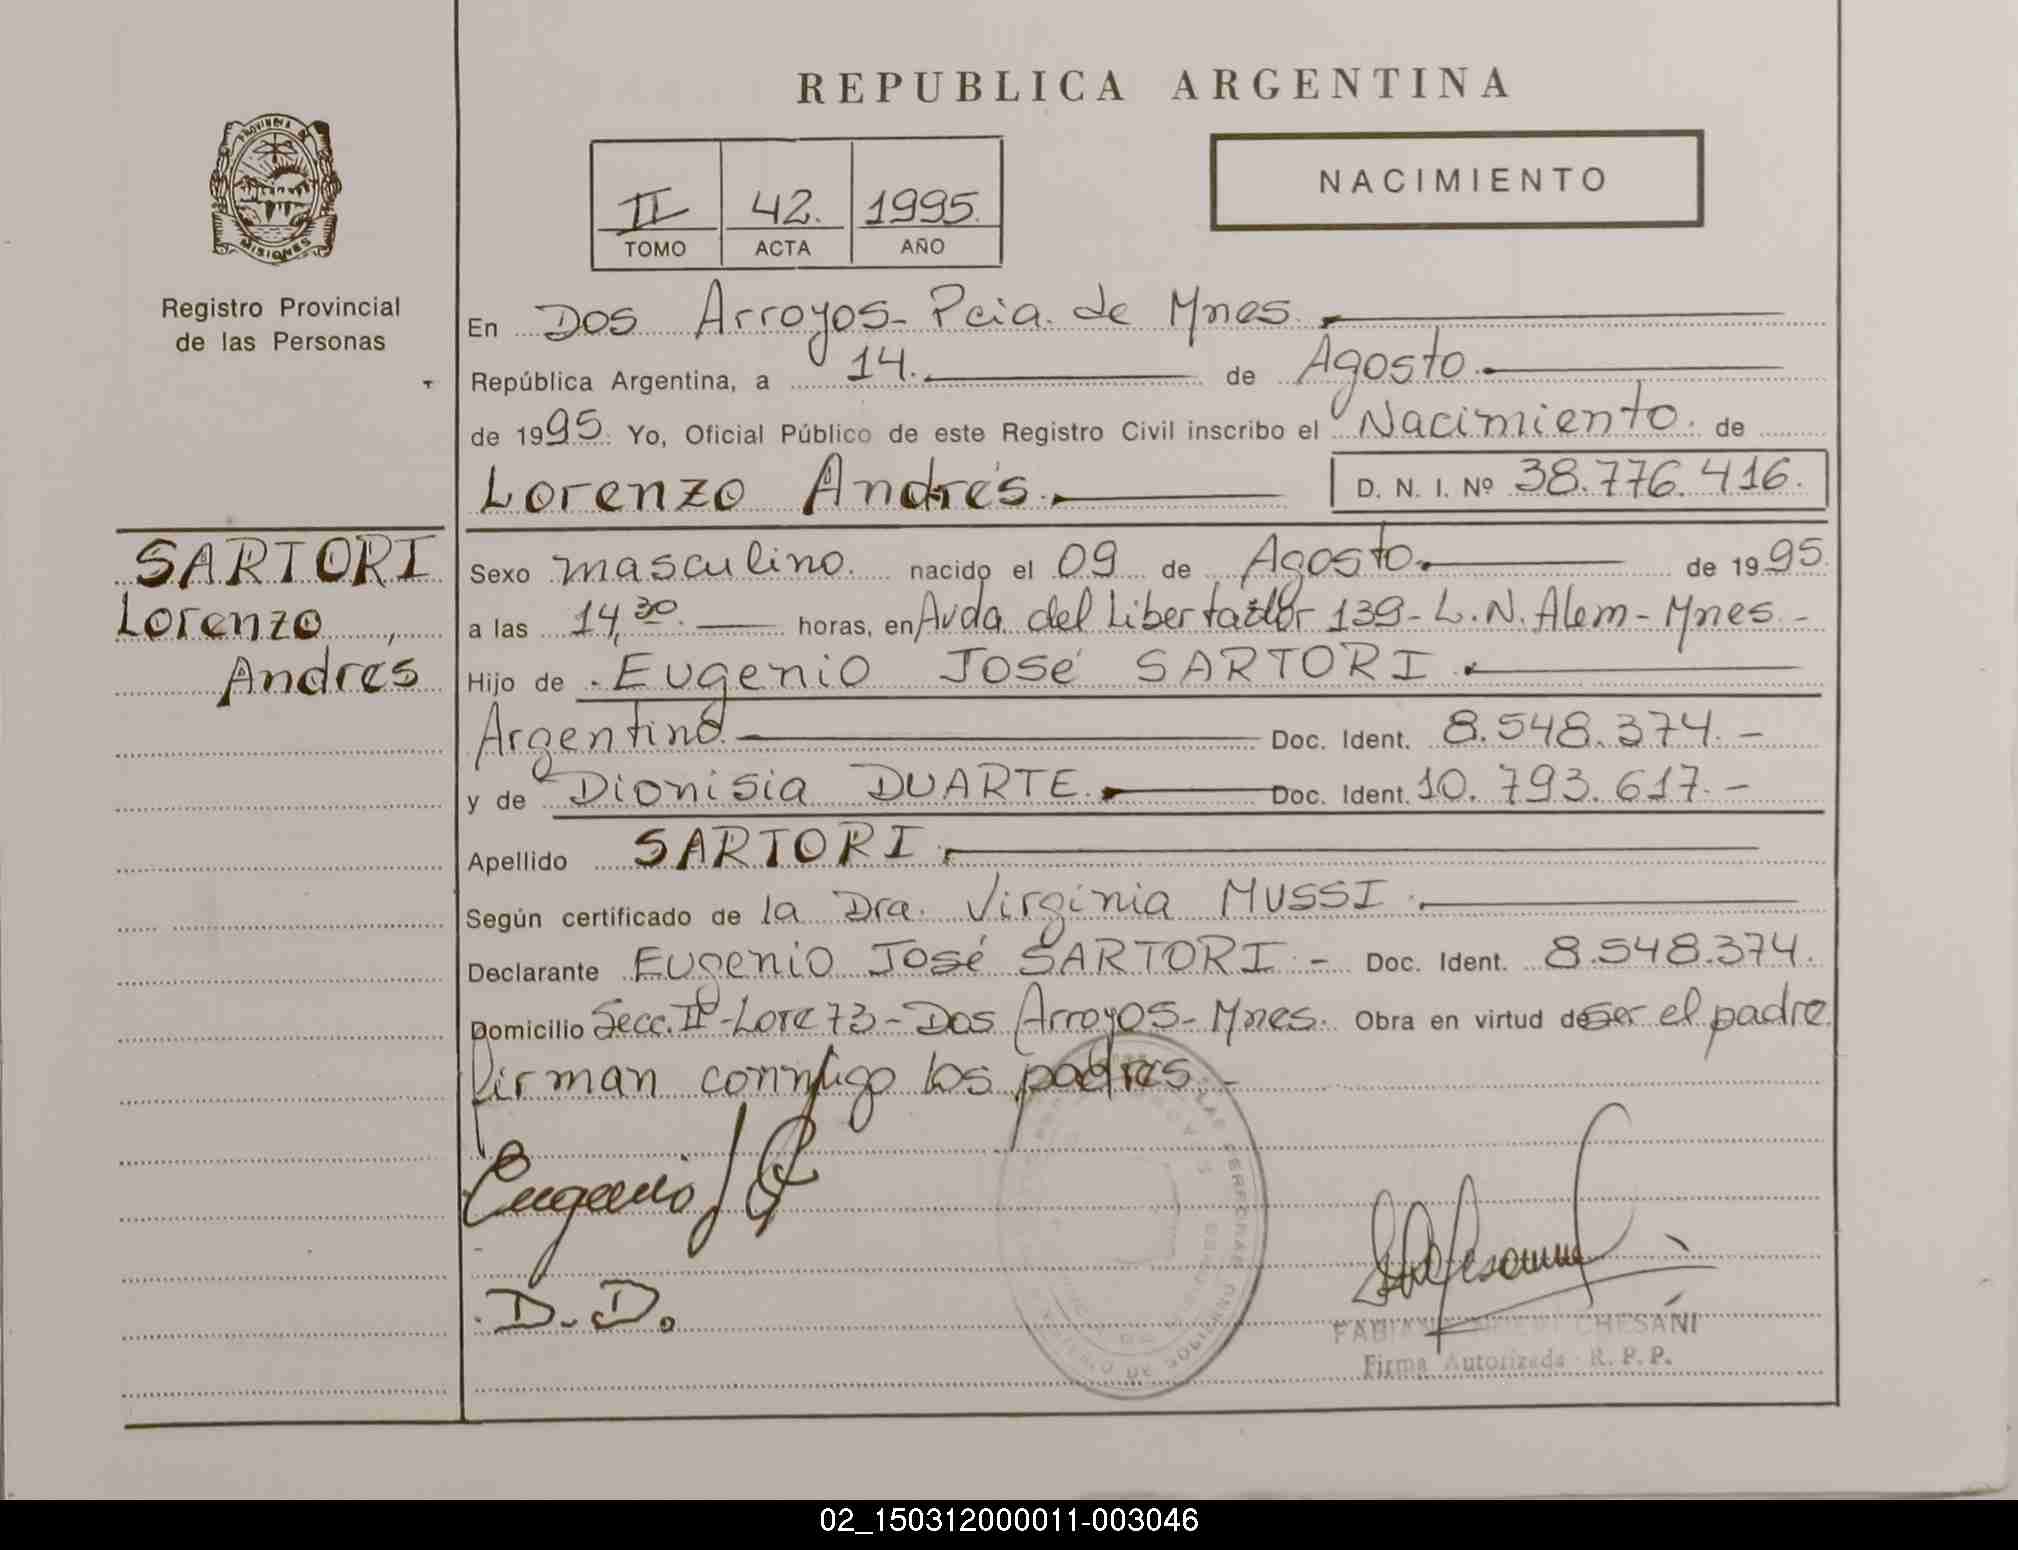 REPUBLICA ARGENTINA
PROVINCIA DE
MISIONES
Registro Provincial
de las Personas
II 42. 1995.
TOMO ACTA AÑO
NACIMIENTO
En Dos Arroyos- Pcia. de Mnes.
República Argentina, a 14. de Agosto.
de 1995. Yo, Oficial Público de este Registro Civil inscribo el Nacimiento. de
Lorenzo Andrés. D. N. I. Nº 38.776.416.
SARTORI
Lorenzo,
Andres
Sexo masculino. nacido el 09 de Agosto. de 1995.
a las 14,30. horas, en Avda. del Libertador 139- L.N. Alem- Mnes.-
Hijo de Eugenio José SARTORI.
Argentino. Doc. Ident. 8.548.374.-
y de Dionisia DUARTE. Doc. Ident. 10.793.617.-
Apellido SARTORI.
Según certificado de la Dra. Virginia MUSSI.
Declarante Eugenio José SARTORI.- Doc. Ident. 8.548.374.
Domicilio Secc. IIº-Lote 73-Dos Arroyos- Mnes. Obra en virtud de ser el padre.
firman conmigo los padres.-
Eugenio J
D.D.
CHESANI
Firma Autorizada R. P. P.
LAS PERSONAS
DE GOBIERNO
02_150312000011-003046